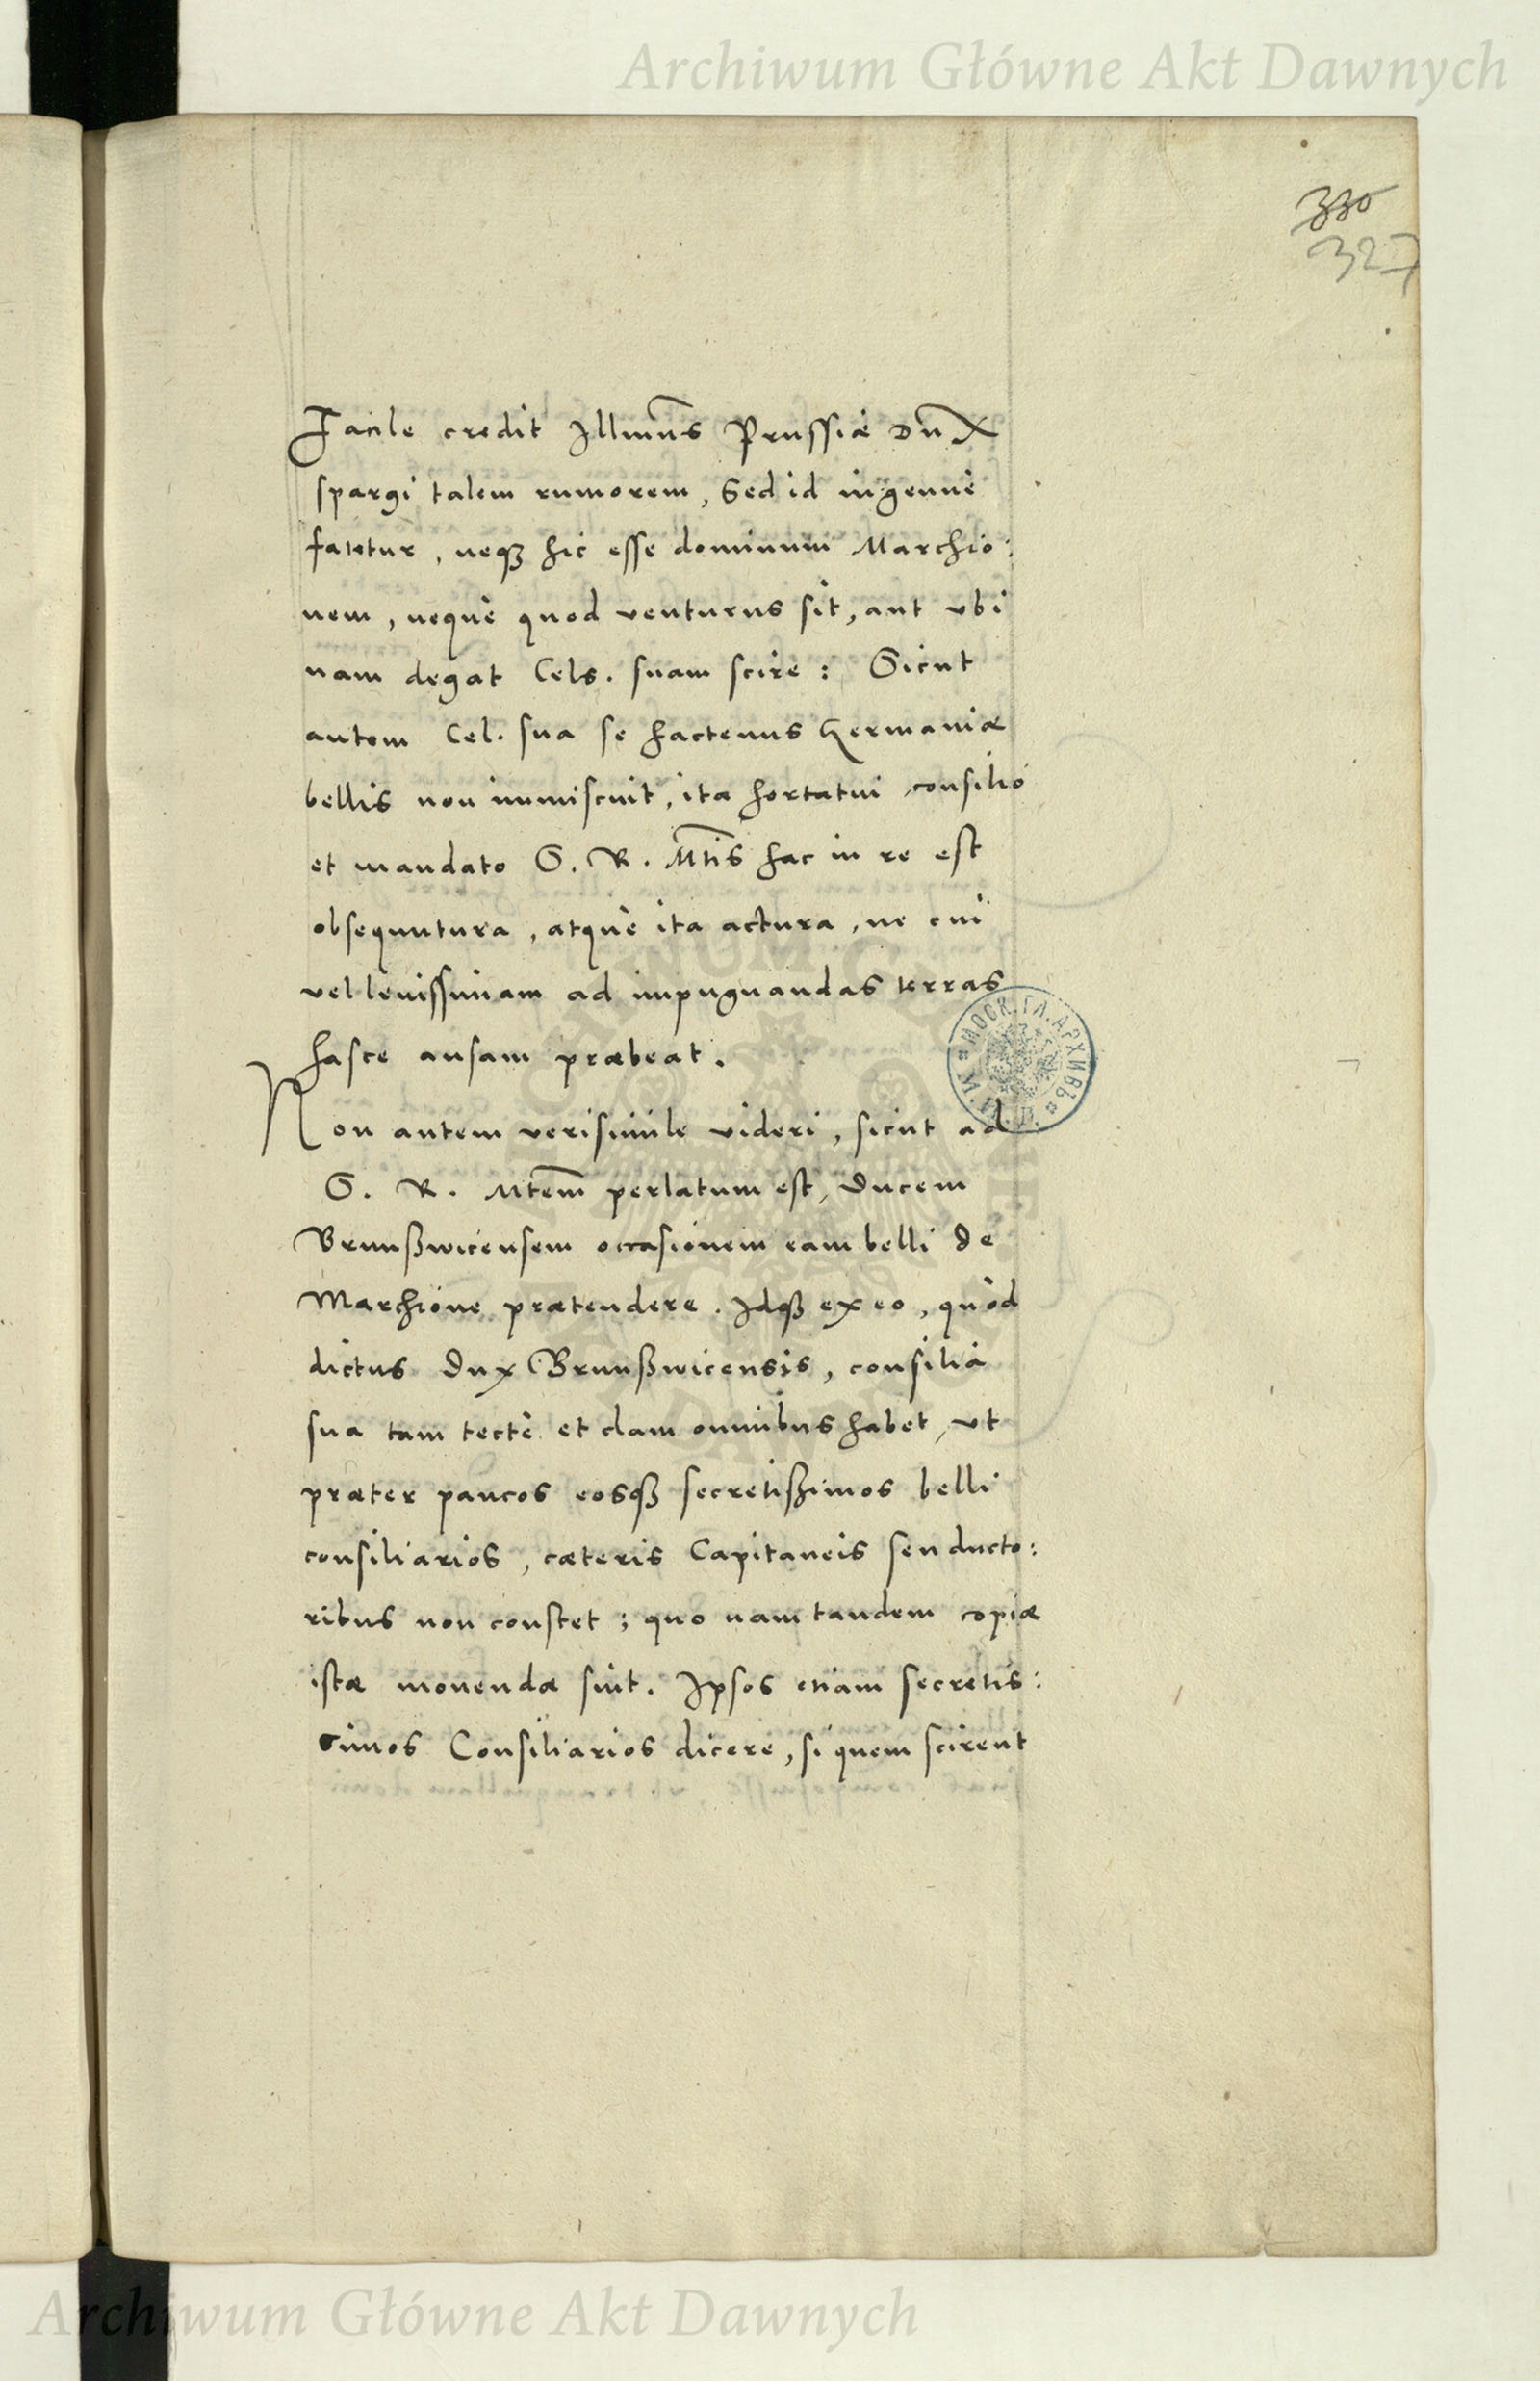 Archiwum Główne Akt Dawnych
330
327
Facile credit Illmus Prussiæ Dux
spargi talem rumorem, Sed id ingenuè
fatetur, neqȝ hic esse dominum Marchio:
nem, nequè quod venturus sit, aut vbi
nam degat Cels. suam scire: Sicut
autem Cel. sua se hactenus Germaniæ
bellis non immiscuit, ita hortatui consilio
et mandato S. R. Mtis hac in re est
obsequutura, atquè ita actura, ne cui
vel leuissimam ad impugnandas terras
hasce ansam præbeat.
Non autem verisimile videri, sicut ad
S. R. Mtem perlatum est, Ducem
Brunßwicensem occasionem eam belli de
Marchione prætendere. Idqȝ ex eo, quòd
dictus Dux Brunßwicensis, consilia
sua tam tectè et clam omnibus habet, vt
præter paucos eosqȝ secretißimos belli
consiliarios, cæteris Capitaneis seu ducto:
ribus non constet; quo nam tandem copiæ
istæ mouendæ sint. Ipsos etiam secretis:
simos Consiliarios dicere, si quem scirent
Archiwum Główne Akt Dawnych